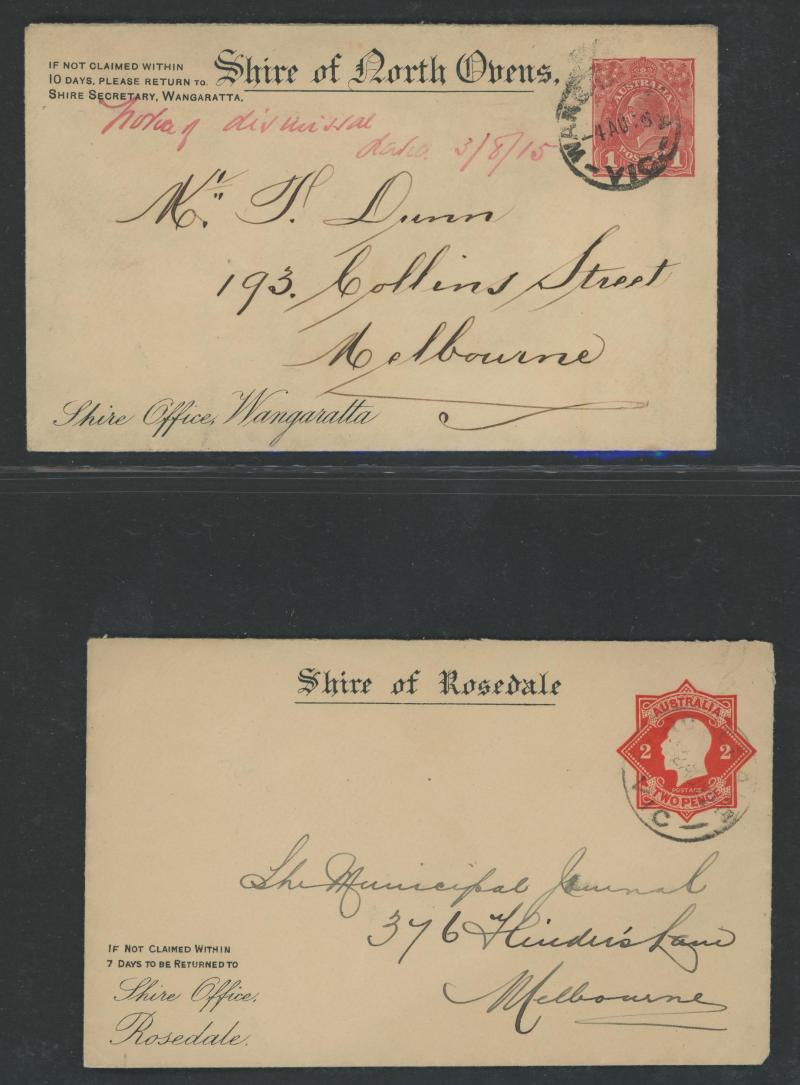 IF NOT CLAIMED WITHIN
10 DAYS, PLEASE RETURN TO
SHIRE SECRETARY, WANGARATTA.
Shire of North Ovens.
AUSTRALIA
1 1
POSTAGE
4 AU
VIC
dismissal
3/8/15
Mr. T. Dunn
193. Collins Street
Melbourne
Shire Office, Wangaratta
Shire of Rosedale
AUSTRALIA
2 2
POSTAGE
TWO PENCE
VIC
The Municipal Journal
376 Flinder's Lane
Melbourne
IF NOT CLAIMED WITHIN
7 DAYS TO BE RETURNED TO
Shire Office,
Rosedale.